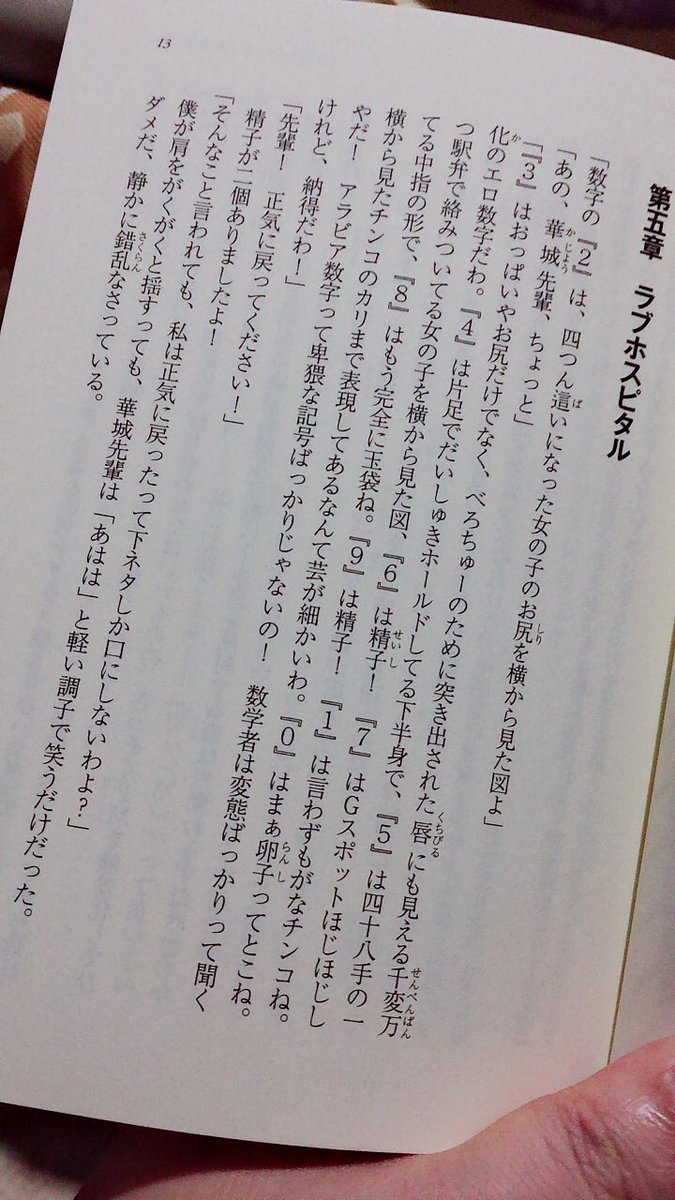 第五章　ラブホスピタル
「数字の『2』は、四つん這いになった女の子のお尻を横から見た図よ」
「あの、華城先輩、ちょっと」
「『3』はおっぱいやお尻だけでなく、べろちゅーのために突き出された唇にも見える千変万
化のエロ数字だわ。『4』は片足でだいしゅきホールドしてる下半身で、『5』は四十八手の一
つ駅弁で絡みついてる女の子を横から見た図、『6』は精子！　『7』はGスポットほじほじし
てる中指の形で、『8』はもう完全に玉袋ね。『9』は精子！　『1』は言わずもがなチンコね。
横から見たチンコのカリまで表現してあるなんて芸が細かいわ。『0』はまぁ卵子ってとこね。
やだ！　アラビア数字って卑猥な記号ばっかりじゃないの！　数学者は変態ばっかりって聞く
けれど、納得だわ！」
「先輩！　正気に戻ってください！」
精子が二個ありましたよ！
「そんなこと言われても、私は正気に戻ったって下ネタしか口にしないわよ？」
僕が肩をがくがくと揺すっても、華城先輩は「あはは」と軽い調子で笑うだけだった。
ダメだ、静かに錯乱なさっている。
13